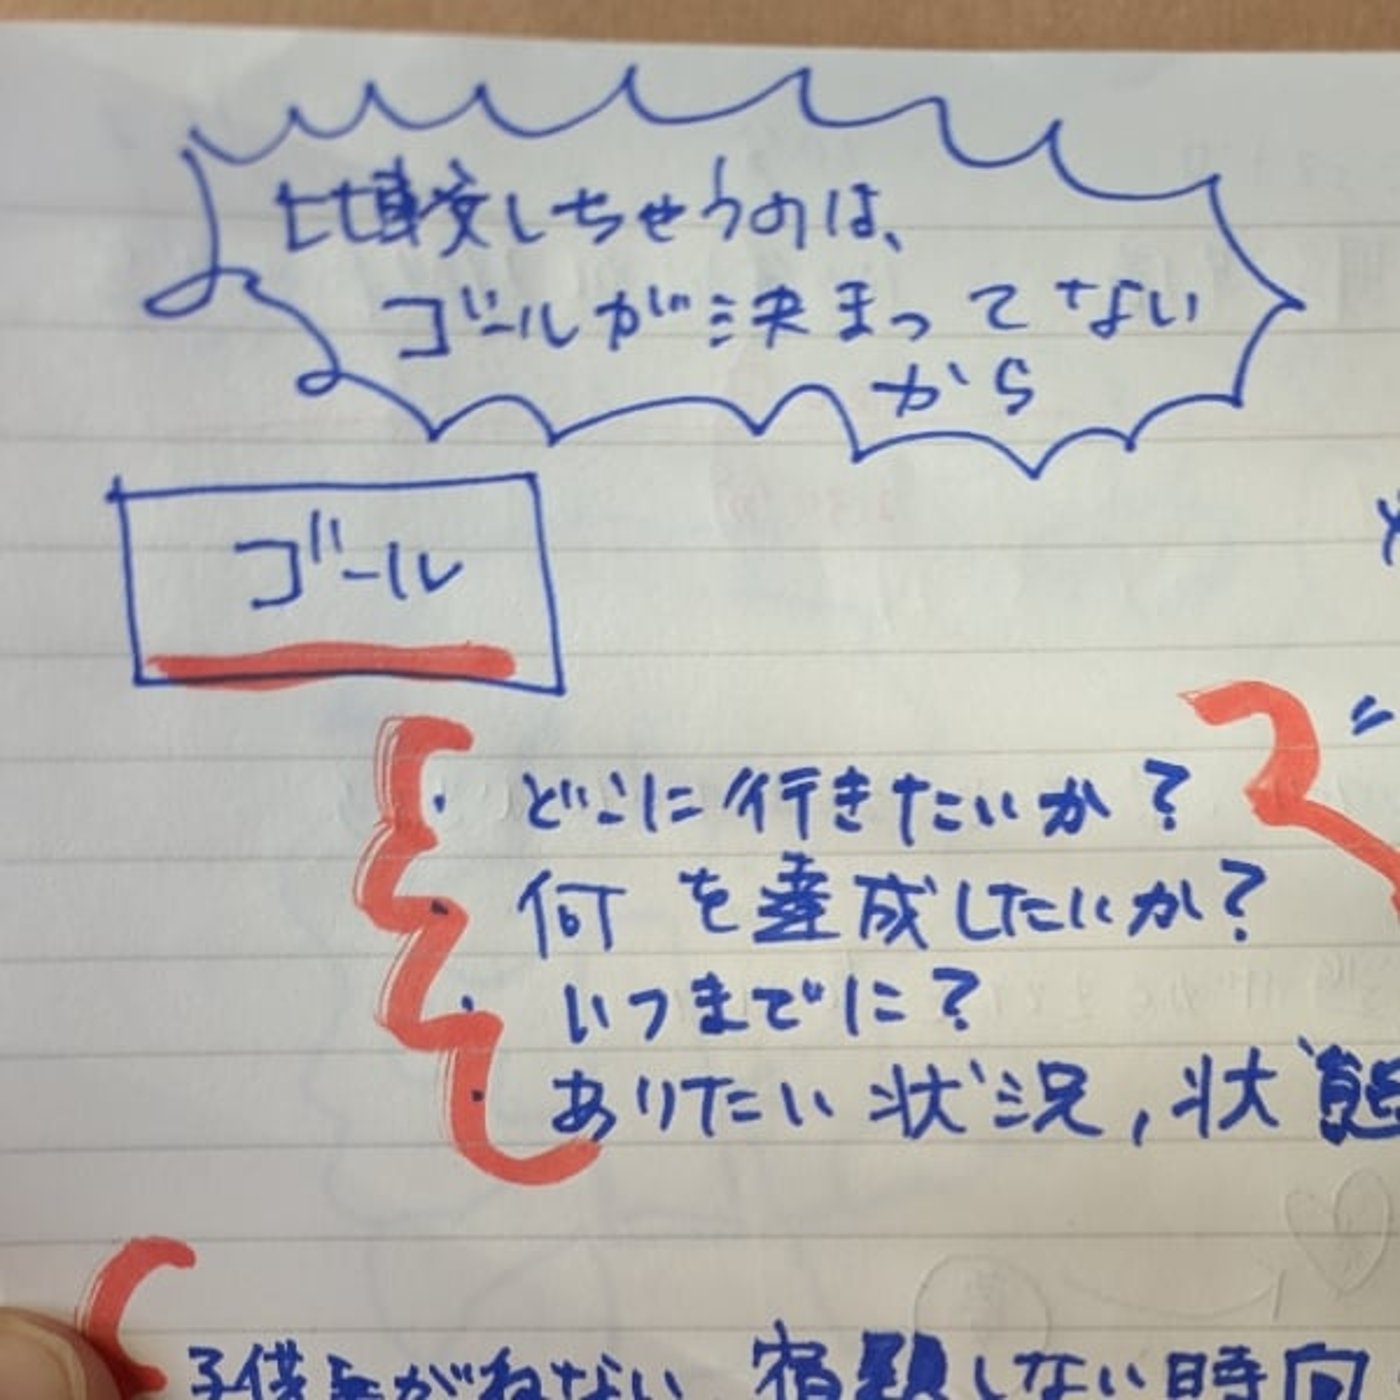 比較しちゃうのは、
ゴールが決まってない
から
ゴール
・どこに行きたいか?
・何を達成したいか?
・いつまでに?
・ありたい状況,状態
子供がねない 宿題しない時間